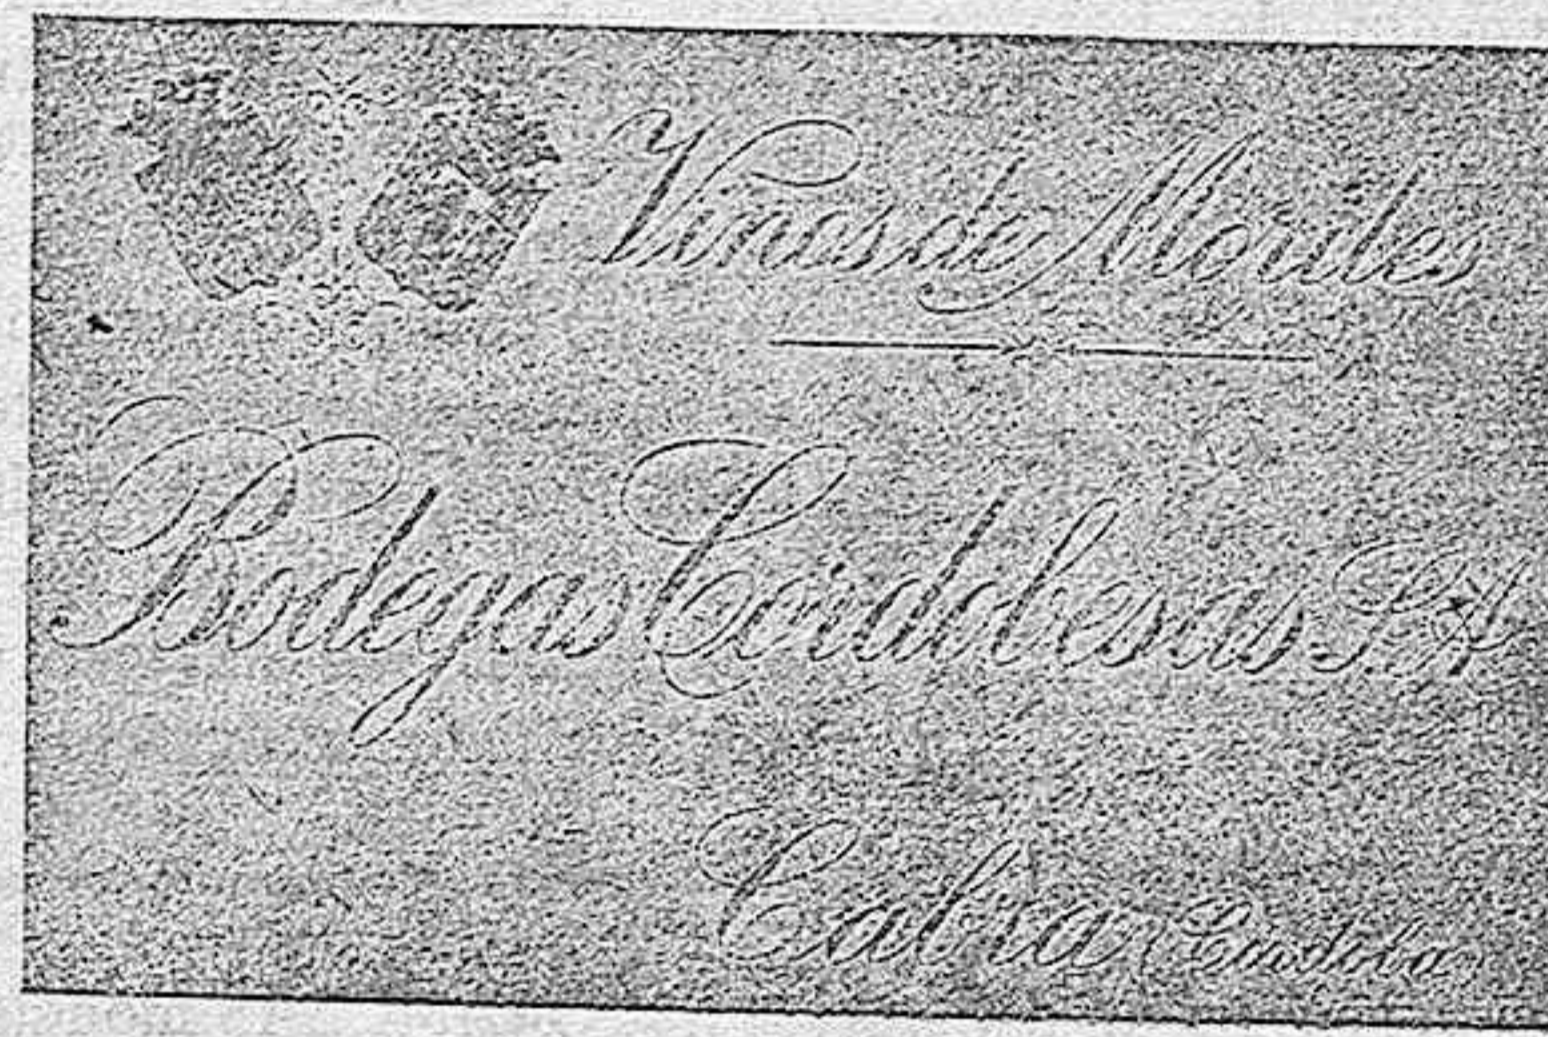 Vinos de Moriles
Bodegas Cordobesas S.A
Cabra (Cordoba)